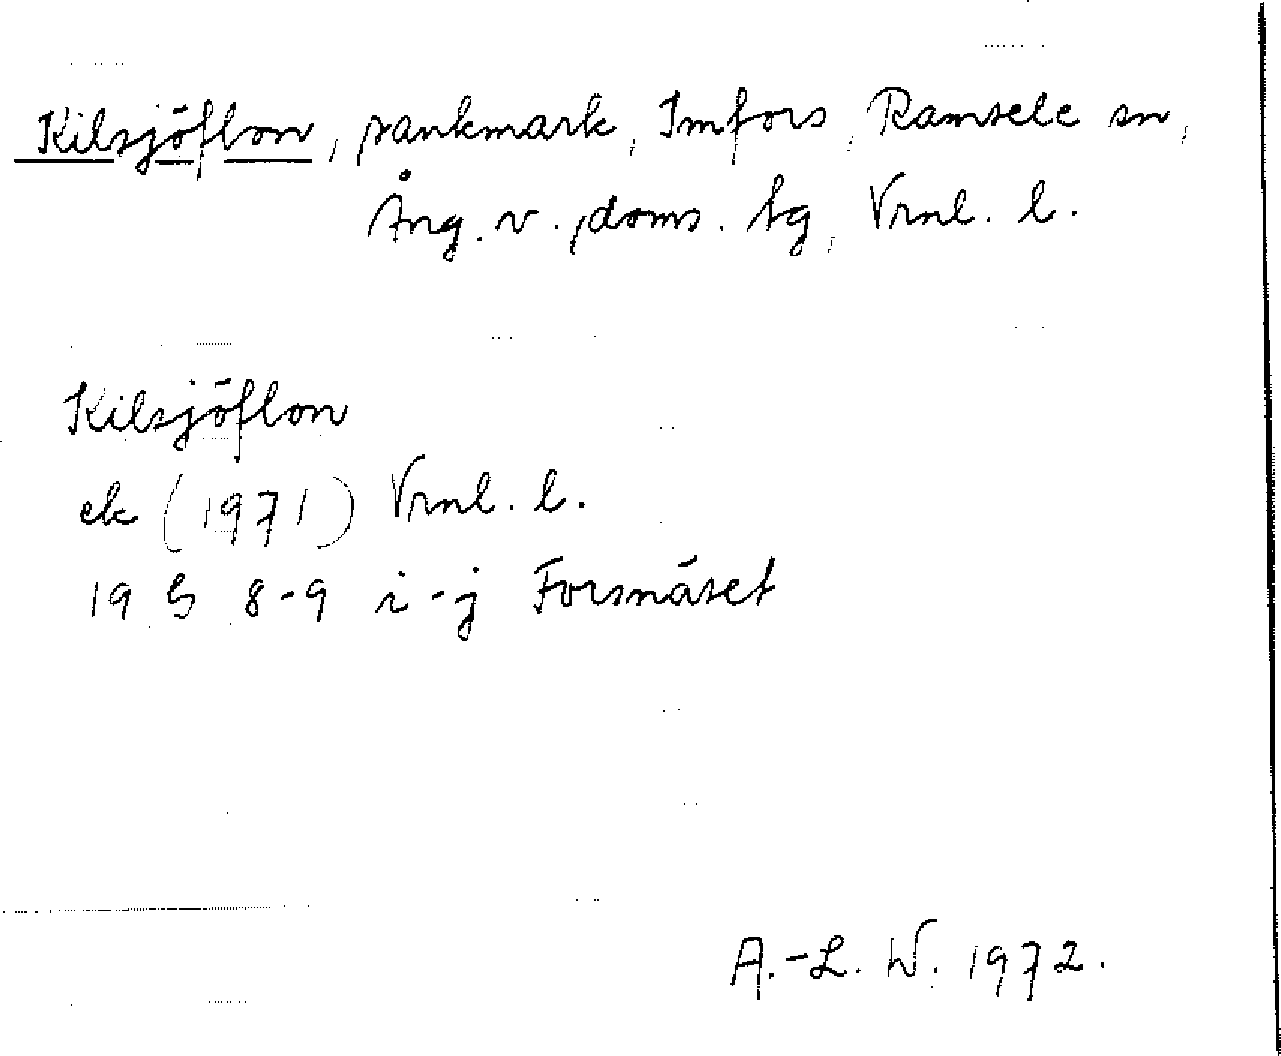 Kilsjöflon, sankmark, Imfors, Ramsele sn,
Ång. v., doms. tg, Vrnl. l.
Kilsjöflon
ek (1971) Vrnl. l.
19 G 8-9 i-j Forsnäset
A.-L. W. 1972.